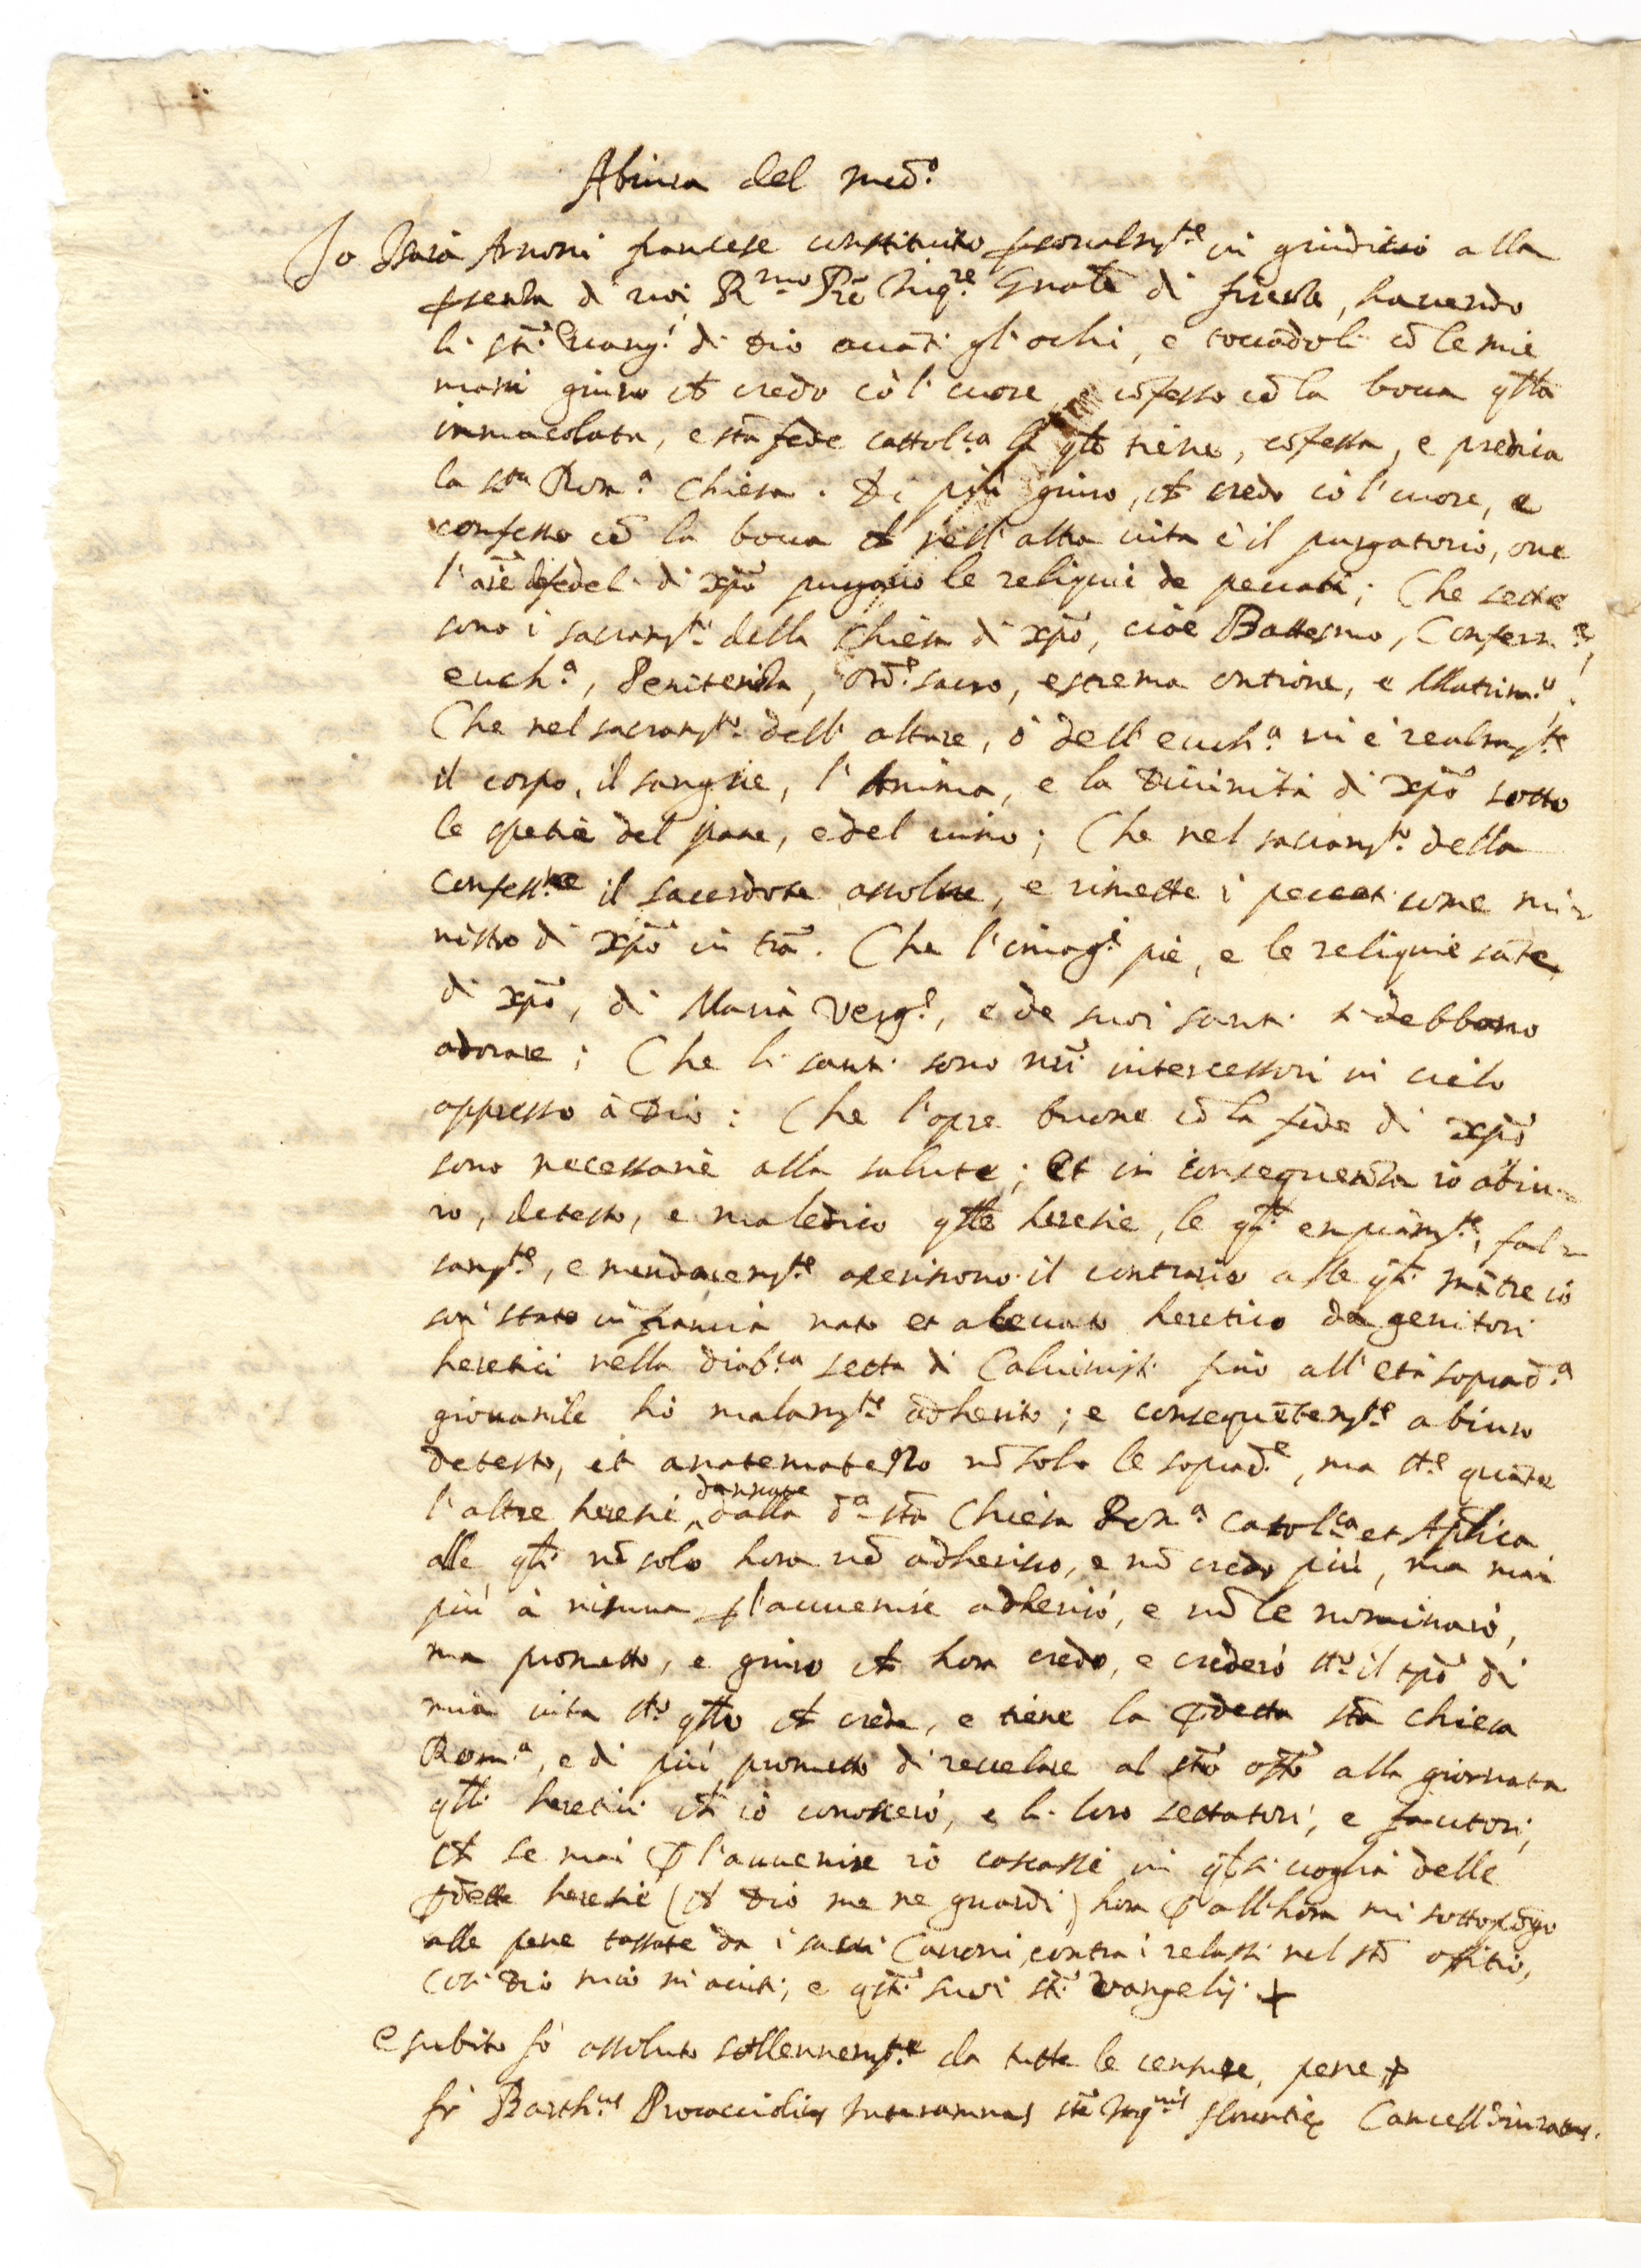 Abiura del med.º
Io Isaia Arnoni francese constituito psonalm.te in giuditio alla
psenza di voi R.mo Pre Inq.re Gnale di firenze, havendo
li sti Evang.i di Dio avati gl'ochi, e toccadoli cō le mie
mani giuro ch credo cō l'cuore, cōfesso cō la bocca qsta
immacolata, e sta fede cattol.ca la qle tiene, cōfessa, e predica
la sta Rom.a Chiesa. Di più giuro, ch credo cō l'cuore, e
confesso cō la bocca ch nell'altra vita è il purgatorio, ove
l'aīe de fedeli di xpō purgano le reliquie de peccati; Che sette
sono i sacram.ti della Chiesa di xpō, cioè Battesmo, Conferm.e,
euch.a, Penitenza, Ord.e sacro, estrema ontione, e Matrim.o;
Che nel sacram.to dell'altare, ò dell'euch.a vi è realm.te
il corpo, il sangue, l'Anima, e la Divinità di xpō sotto
le spetie del pane, e del vino; Che nel sacram.to della
Confess.ne il sacerdote assolve, e rimette i peccati come mi-
nistro di xpō in tra. Che l'imag.i pie, e le reliquie sāte
di xpō, di Maria Verg.e, e de suoi santi si debbono
adorare; Che li santi sono nri intercessori in cielo
appresso à Dio: Che l'opre buone cō la fede di xpō
sono necessarie alla salute; Et in consequenza io abiu-
ro, detesto, e maledico qlle heresie, le qli empiam.te, fal-
sam.te, e mendacem.te aserirono il contrario alle qli mētre io
son stato in francia nato et alevato heretico da genitori
heretici nella diab.ca setta di Calvinisti fino all'età soprad.a
giovanile hò malam.te adherito; e consequētem.te abiuro
detesto, et anatematezzo nō solo le soprad.e, ma tt.e quāte
l'altre heresie dannate dalla d.a sta Chiesa Rom.a catol.ca et Aplica
alle qli nō solo hora nō adherisco, e nō credo più, ma mai
più à nisuna p l'avvenire adherirò, e nō le nominarò,
ma prometto, e giuro ch hora credo, e crederò tt.o il tpō di
mia vita tt.o qllo ch crede, e tiene la pdetta sta chiesa
Rom.a, e di più prometto di revelare al sto offo alla giornata
qlli heretici ch io conoscerò, e li loro settatori, e fautori,
Et se mai p l'avvenire io cascasse in qlsi voglia delle
pdette heresie (ch Dio me ne guardi) hora p all'hora mi sottopōgo
alle pene tassate da i sacri Canoni contra i relassi nel sto offitio,
Così Dio mio mi aiuti, e qsti suoi sti evangelij +
e subito fò assoluto sollennem.te da tutte le censure, pene
fr Barth.us Procacciolius Interamnas ste Inq.nis florentie Cancell.s iuratus.